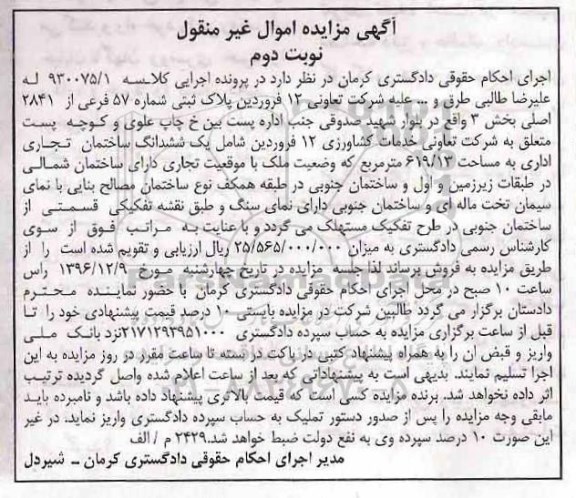 آگهی مزایده اموال غیر منقول
نوبت دوم
اجرای احکام حقوقی دادگستری کرمان در نظر دارد در پرونده اجرایی کلاسه ۹۳۰۰۷۵/۱ له
علیرضا طالبی طرق و ... علیه شرکت تعاونی ۱۲ فروردین پلاک ثبتی شماره ۵۷ فرعی از ۲۸۴۱
اصلی بخش ۳ واقع در بلوار شهید صدوقی جنب اداره پست بین خ چاپ علوی و کوچه پست
متعلق به شرکت تعاونی خدمات کشاورزی ۱۲ فروردین شامل یک ششدانگ ساختمان تجاری
اداری به مساحت ۶۱۹/۱۳ مترمربع که وضعیت ملک با موقعیت تجاری دارای ساختمان شمالی
در طبقات زیرزمین و اول و ساختمان جنوبی در طبقه همکف نوع ساختمان مصالح بنایی با نمای
سیمان تخت ماله ای و ساختمان جنوبی دارای نمای سنگ و طبق نقشه تفکیکی قسمتی از
ساختمان جنوبی در طرح تفکیک مستهلک می گردد و با عنایت به مراتب فوق از سوی
کارشناس رسمی دادگستری به میزان ۲۵/۵۶۵/۰۰۰/۰۰۰ ریال ارزیابی و تقویم شده است را از
طریق مزایده به فروش برساند لذا جلسه مزایده در تاریخ چهارشنبه مورخ ۱۳۹۶/۱۲/۹ راس
ساعت ۱۰ صبح در محل اجرای احکام حقوقی دادگستری کرمان با حضور نماینده محترم
دادستان برگزار می گردد طالبین شرکت در مزایده بایستی ۱۰ درصد قیمت پیشنهادی خود را تا
قبل از ساعت برگزاری مزایده به حساب سپرده دادگستری ۲۱۷۱۲۹۲۹۵۱۰۰۰ نزد بانک ملی
واریز و قبض آن را به همراه پیشنهاد کتبی در پاکت در بسته تا ساعت مقرر در روز مزایده به این
اجرا تسلیم نمایند. بدیهی است به پیشنهاداتی که بعد از ساعت اعلام شده واصل گردیده ترتیب
اثر داده نخواهد شد. برنده مزایده کسی است که قیمت بالاتری پیشنهاد داده باشد و نامبرده باید
مابقی وجه مزایده را پس از صدور دستور تملیک به حساب سپرده دادگستری واریز نماید. در غیر
این صورت ۱۰ درصد سپرده وی به نفع دولت ضبط خواهد شد. ۲۴۲۹ م / الف
مدیر اجرای احکام حقوقی دادگستری کرمان ــ شیردل